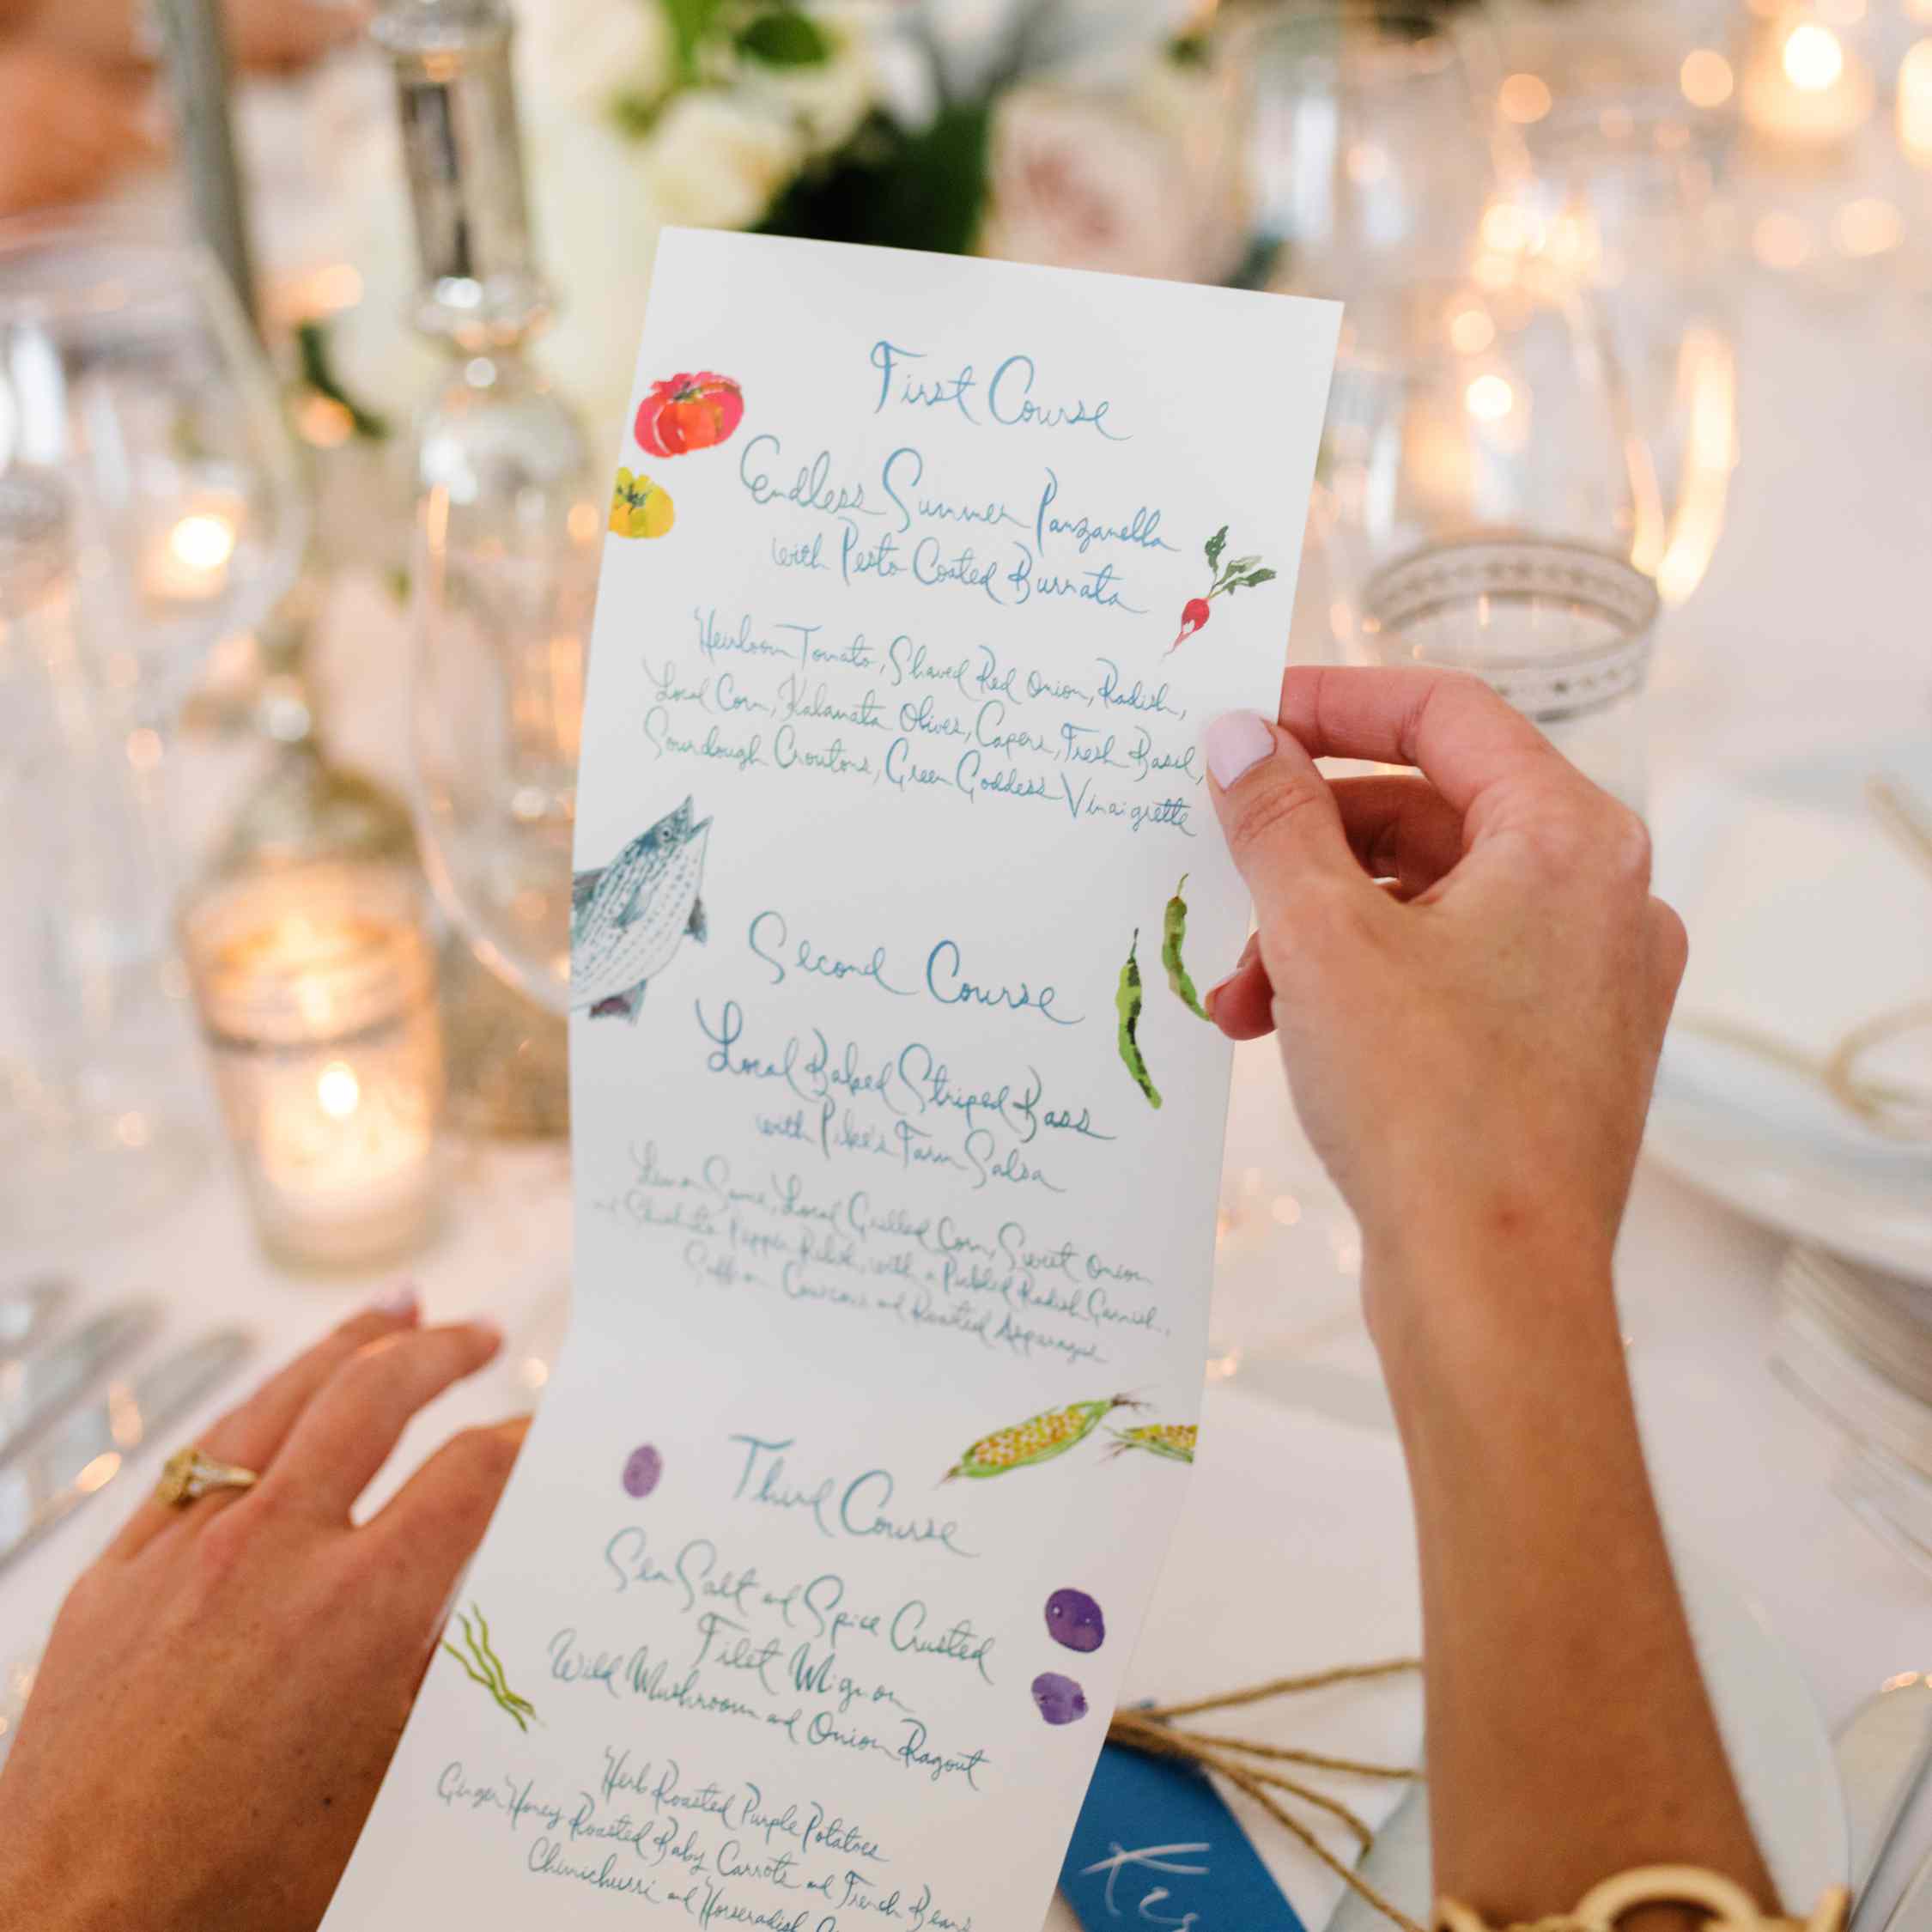 First Course
Endless Summer Panzanella
with Pesto Coated Burrata
Heirloom Tomato, Shaved Red Onion, Radish,
Local Corn, Kalamata Olives, Capers, Fresh Basil,
Sourdough Croutons, Green Goddess Vinaigrette
Second Course
Local Baked Striped Bass
with Pike's Farm Salsa
Lemon Sauce, Local Grilled Corn, Sweet Onion
and Shishito Pepper Relish, with a Pickled Radish Garnish,
Saffron Couscous and Roasted Asparagus
Third Course
Sea Salt and Spice Crusted
Filet Mignon
Wild Mushroom and Onion Ragout
Herb Roasted Purple Potatoes
Ginger Honey Roasted Baby Carrots and French Beans
Chimichurri and Horseradish